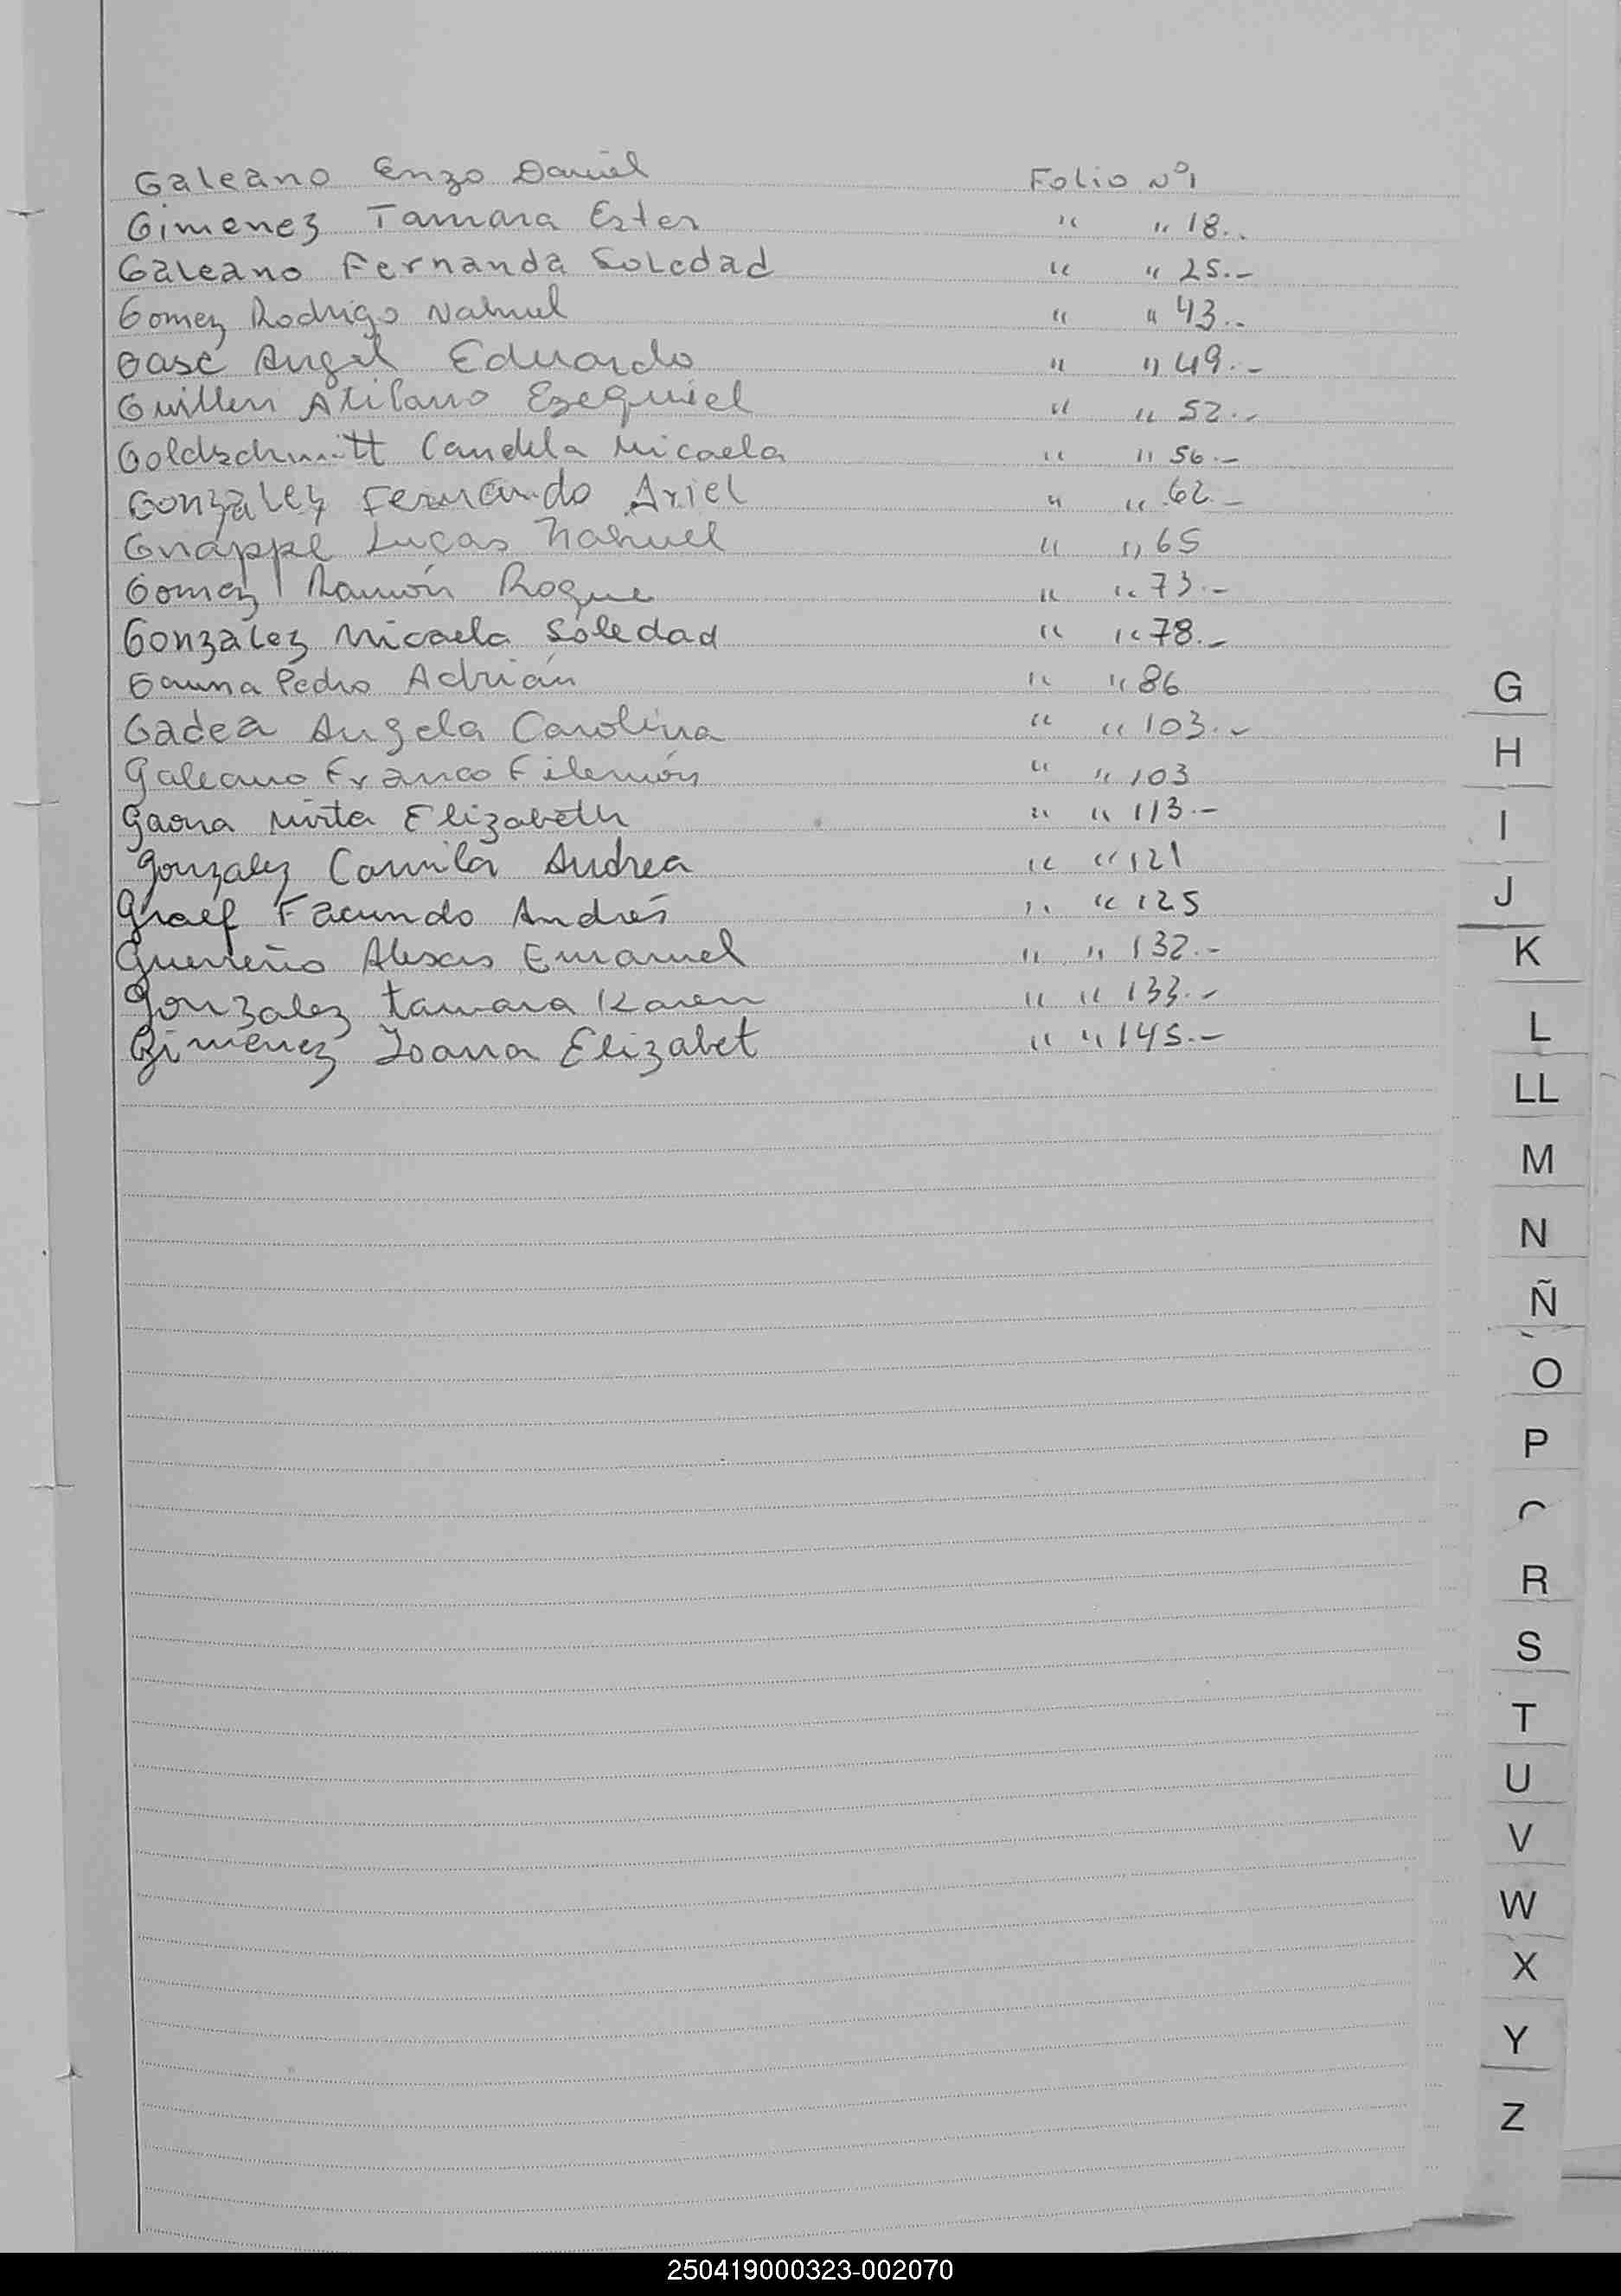 Galeano Enzo Daniel Folio Nº 1
Gimenez Tamara Ester " " 18.-
Galeano Fernanda Soledad " " 25.-
Gomez Rodrigo Nahuel " " 43.-
Gasc Angel Eduardo " " 49.-
Guillen Atilano Ezequiel " " 52.-
Goldschmitt Candela Micaela " " 56.-
González Fernando Ariel " " 62.-
Gnappe Lucas Nahuel " " 65
Gomez Ramón Roque " " 73.-
González Micaela Soledad " " 78.-
Gauna Pedro Adrián " " 86
Gadea Angela Carolina " " 103.-
Galeano Franco Filemón " " 103
Gaona Mirta Elizabeth " " 113.-
Gonzalez Camila Andrea " " 121
Graef Facundo Andrés " " 125
Guerreño Alexis Emanuel " " 132.-
Gonzalez Tamara Karen " " 133.-
Gimenez Joana Elizabet " " 145.-
G
H
I
J
K
L
LL
M
N
Ñ
O
P
R
S
T
U
V
W
X
Y
Z
250419000323-002070